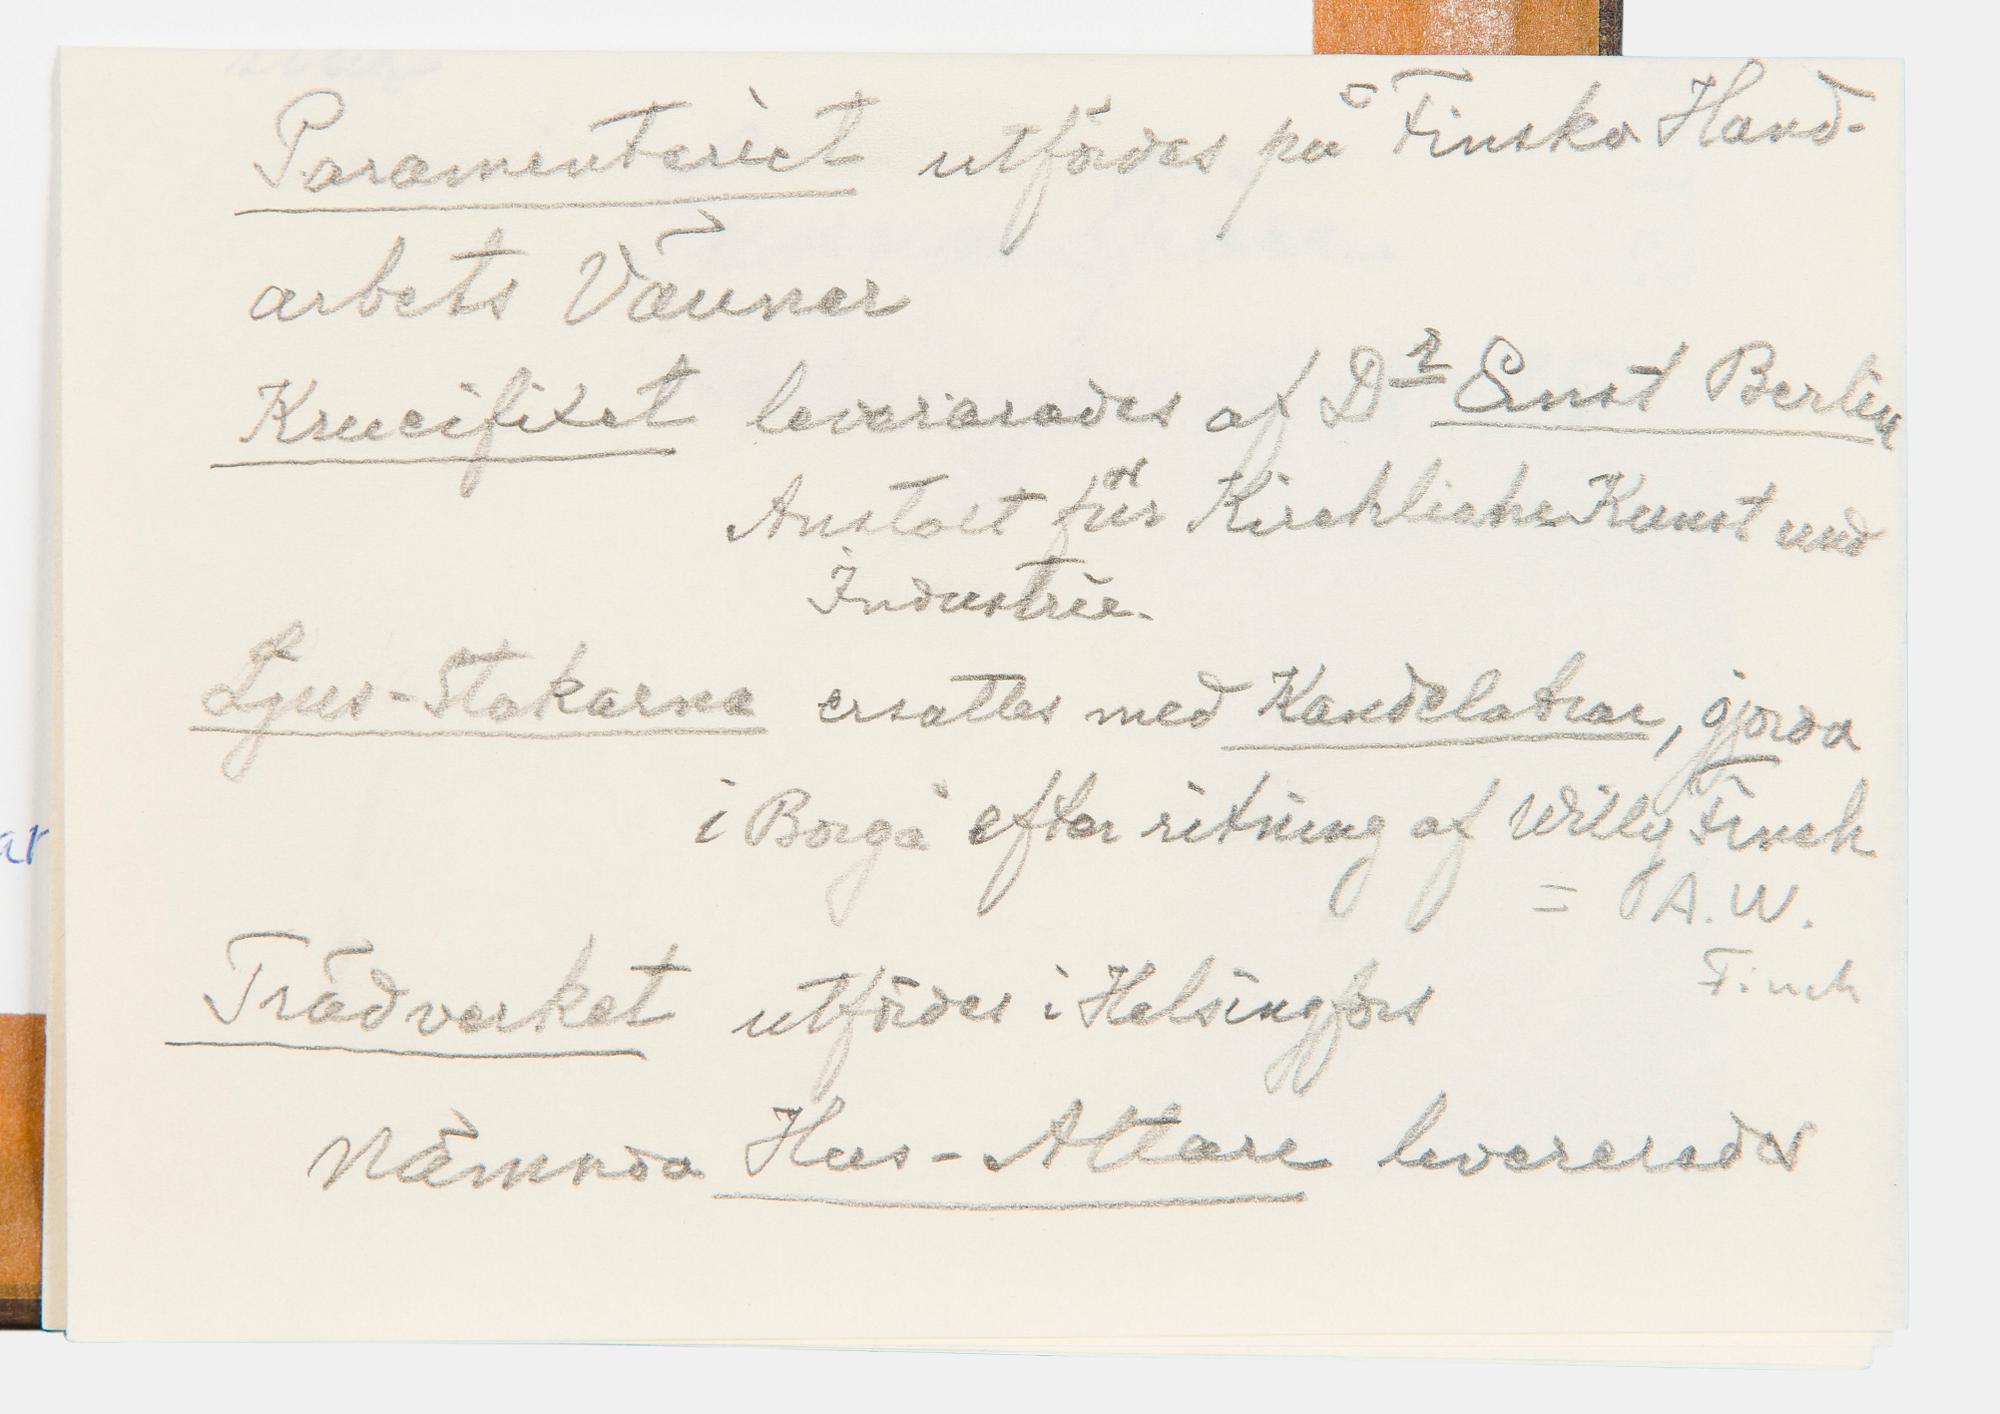 Paramenteriet utfördes på Finska Hand-
arbets Vänner
Krucifixet levererades af Dr Ernst Berlin
Anstalt für Kirchliche Kunst und
Industrie.
Ljus-Stakarna ersattes med Kandelabrar, gjorda
i Borgå efter ritning af Willy Finch
= A.W.
Finch
Trädverket utfördes i Helsingfors
Nämnda Hus-Altare levererades
ar